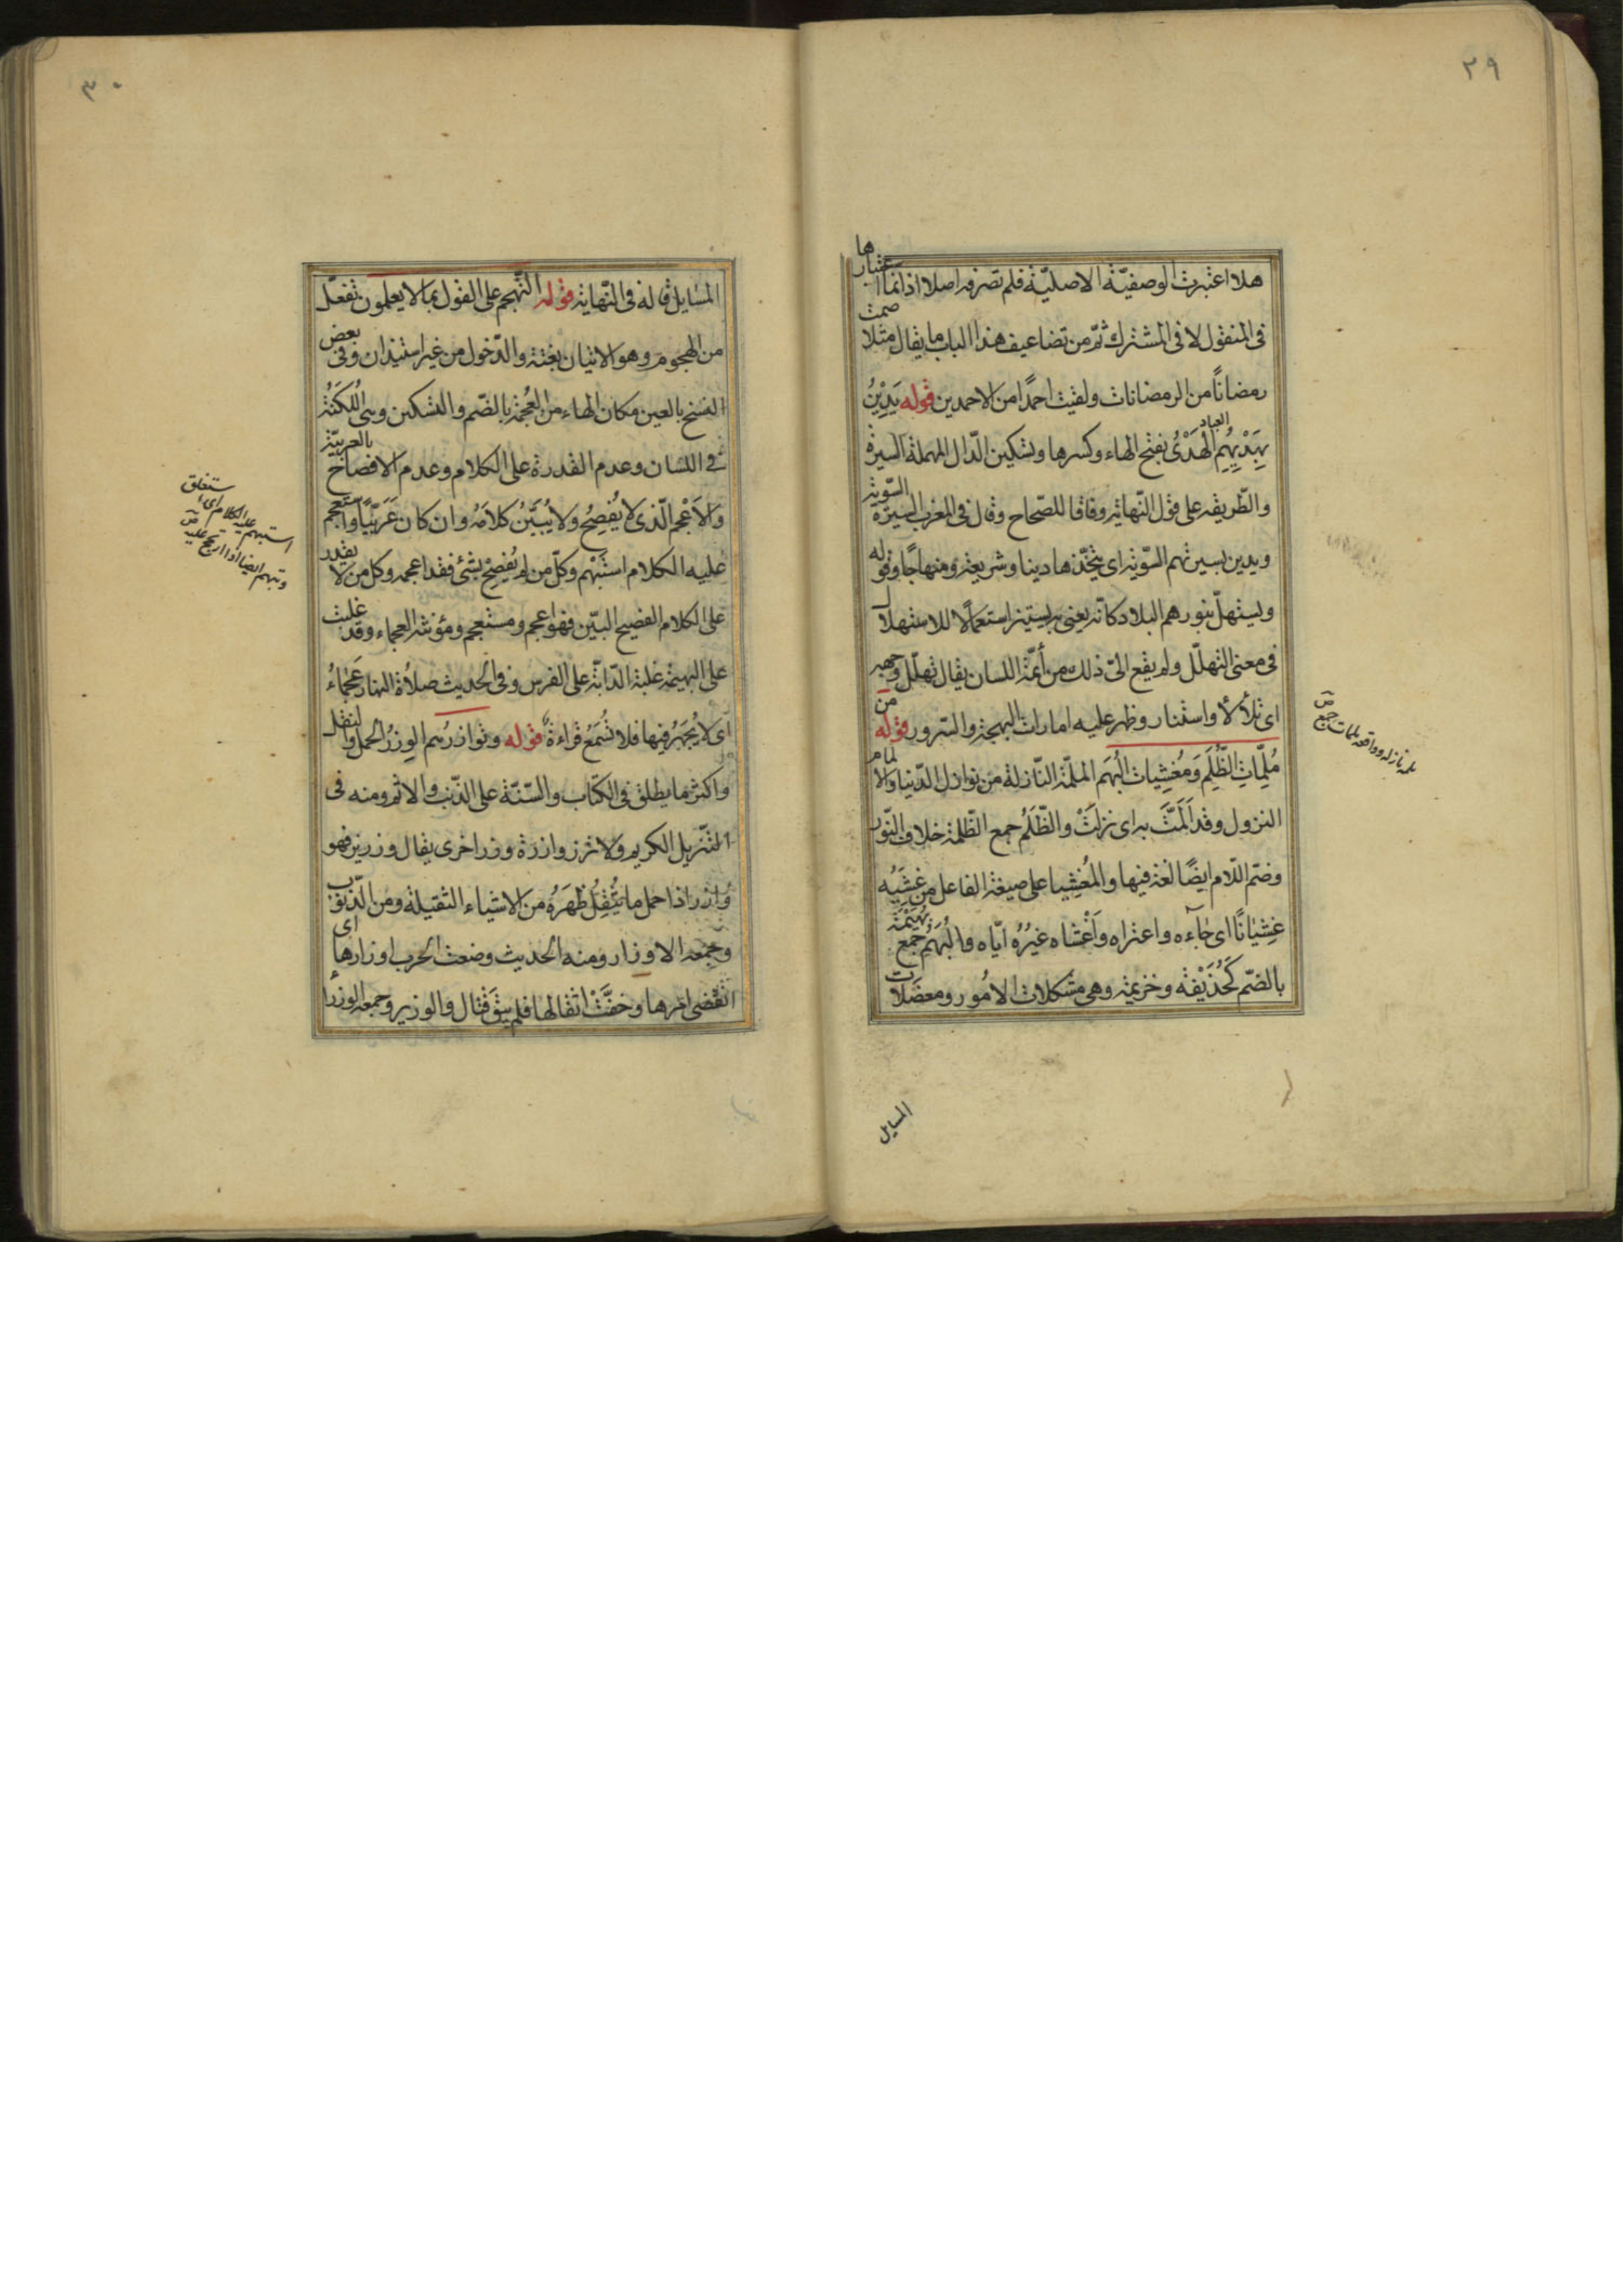 ٢٩
هلا اعتبرت الوصفيّة الاصليّة فلم تصرفه اصلا اذ انما اعتبارها
فى المنقول لا فى المشترك ثمّ من تضاعيف هذا الباب ما يقال مثلا صمت
رمضاناً من الرمضانات ولقيت احمدًا من الاحمدين قوله يَدِيْنُ العباد
بِهَدْيِهِم الهَدْىُ بفتح الهاء وكسرها وتسكين الدّال المهملة السيرة السّويّة
والطّريقة على قول النّهاية وفاقا للصّحاح وقال فى المغرب السيرة
ويدين بسيرتهم السّويّة اى يتخّذها دينا وشريعة ومنهاجًا وقوله
ويستهلّ بنورهم البلاد كانّه يعنى به يستنير استعمالًا للاستهلال
فى معنى التهلّل ولم يقع الىّ ذلك من أئمّة اللسان يقال تهلّل وجهه
اى تلألأ واستنار وظهر عليه امارات البهجة والسّرور قوله من
مُلِمّاتِ الظُلَم وَمُغشِياتِ البُهَم الملمّة النّازلة من نوازل الدّنيا والالمام
النزول وقد اَلَمَّتْ به اى نزلَتْ والظُلَمُ جمع الظّلمة خلاف النّور
وضمّ اللّام ايضًا لغة فيها والمُغشِيا على صيغة الفاعل من غشِيَه
غِشيَانًا اى جآءه واعتراه وَاَغْشاه غيرُهُ ايّاه والبُهَمُ جمع بُهْمَة
بالضمّ كَحُذَيْفَة وخزيمة وهى مشكلات الامُور ومعضلات
المسايل
ملمه نازله وواقعه ملمات جمع ص
٣٠
المسايل قاله فى النّهاية قوله التّهجم على القول بما لا يعلمون تفعّل
من الهجوم وهو الاتيان بغتة والدّخول من غير استيذان وفى بعض
النسخ بالعين مكان الهاء من العُجمة بالضّم والتسكين وهى اللُكنَةُ
فى اللسان وعدم القدرة على الكلام وعدم الافصاح بالعربيّة
وَالاَعْجم الّذى لا يُفصِحُ ولا يُبَيّنُ كلامَهُ وان كان عَرَبيًّا واستعجم
عليه الكلام استبْهم وكلّ من لم يُفصِحْ بشئ فقد اعجمه وكل من لا يقدر
على الكلام الفصيح البيّن فهو اعجم ومستعجم ومؤنثه العجماء وقد غلبت
على البهيمة غلبة الدّابّة على الفرس وفى الحديث صلاة النهار عَجْماءُ
اى لا يُجهَرُ فيها فلا تُسْمَعُ قراءةٌ قوله وتوازرُهم الوِزرُ الحمل والثقل
واكثر ما يطلق فى الكتاب والسّنّة على الذّنب والاثم ومنه فى
التنزيل الكريم ولا تزر وازرة وزر اخرى يقال وزر يزر فهو
وازر اذا حمل ما يُثقِلُ ظهَرَهُ من الاشياء الثقيلة ومن الذّنوب
وجمعه الاوزار ومنه الحديث وضعت الحرب اوزارها اى
انقضى امرها وخفَّتْ اثقالها فلم يبقَ قتال والوزير وجمعه الوزراء
استبهم عليه الكلام اى استغلق
وتبهم ايضا اذا ارتج عليه ص